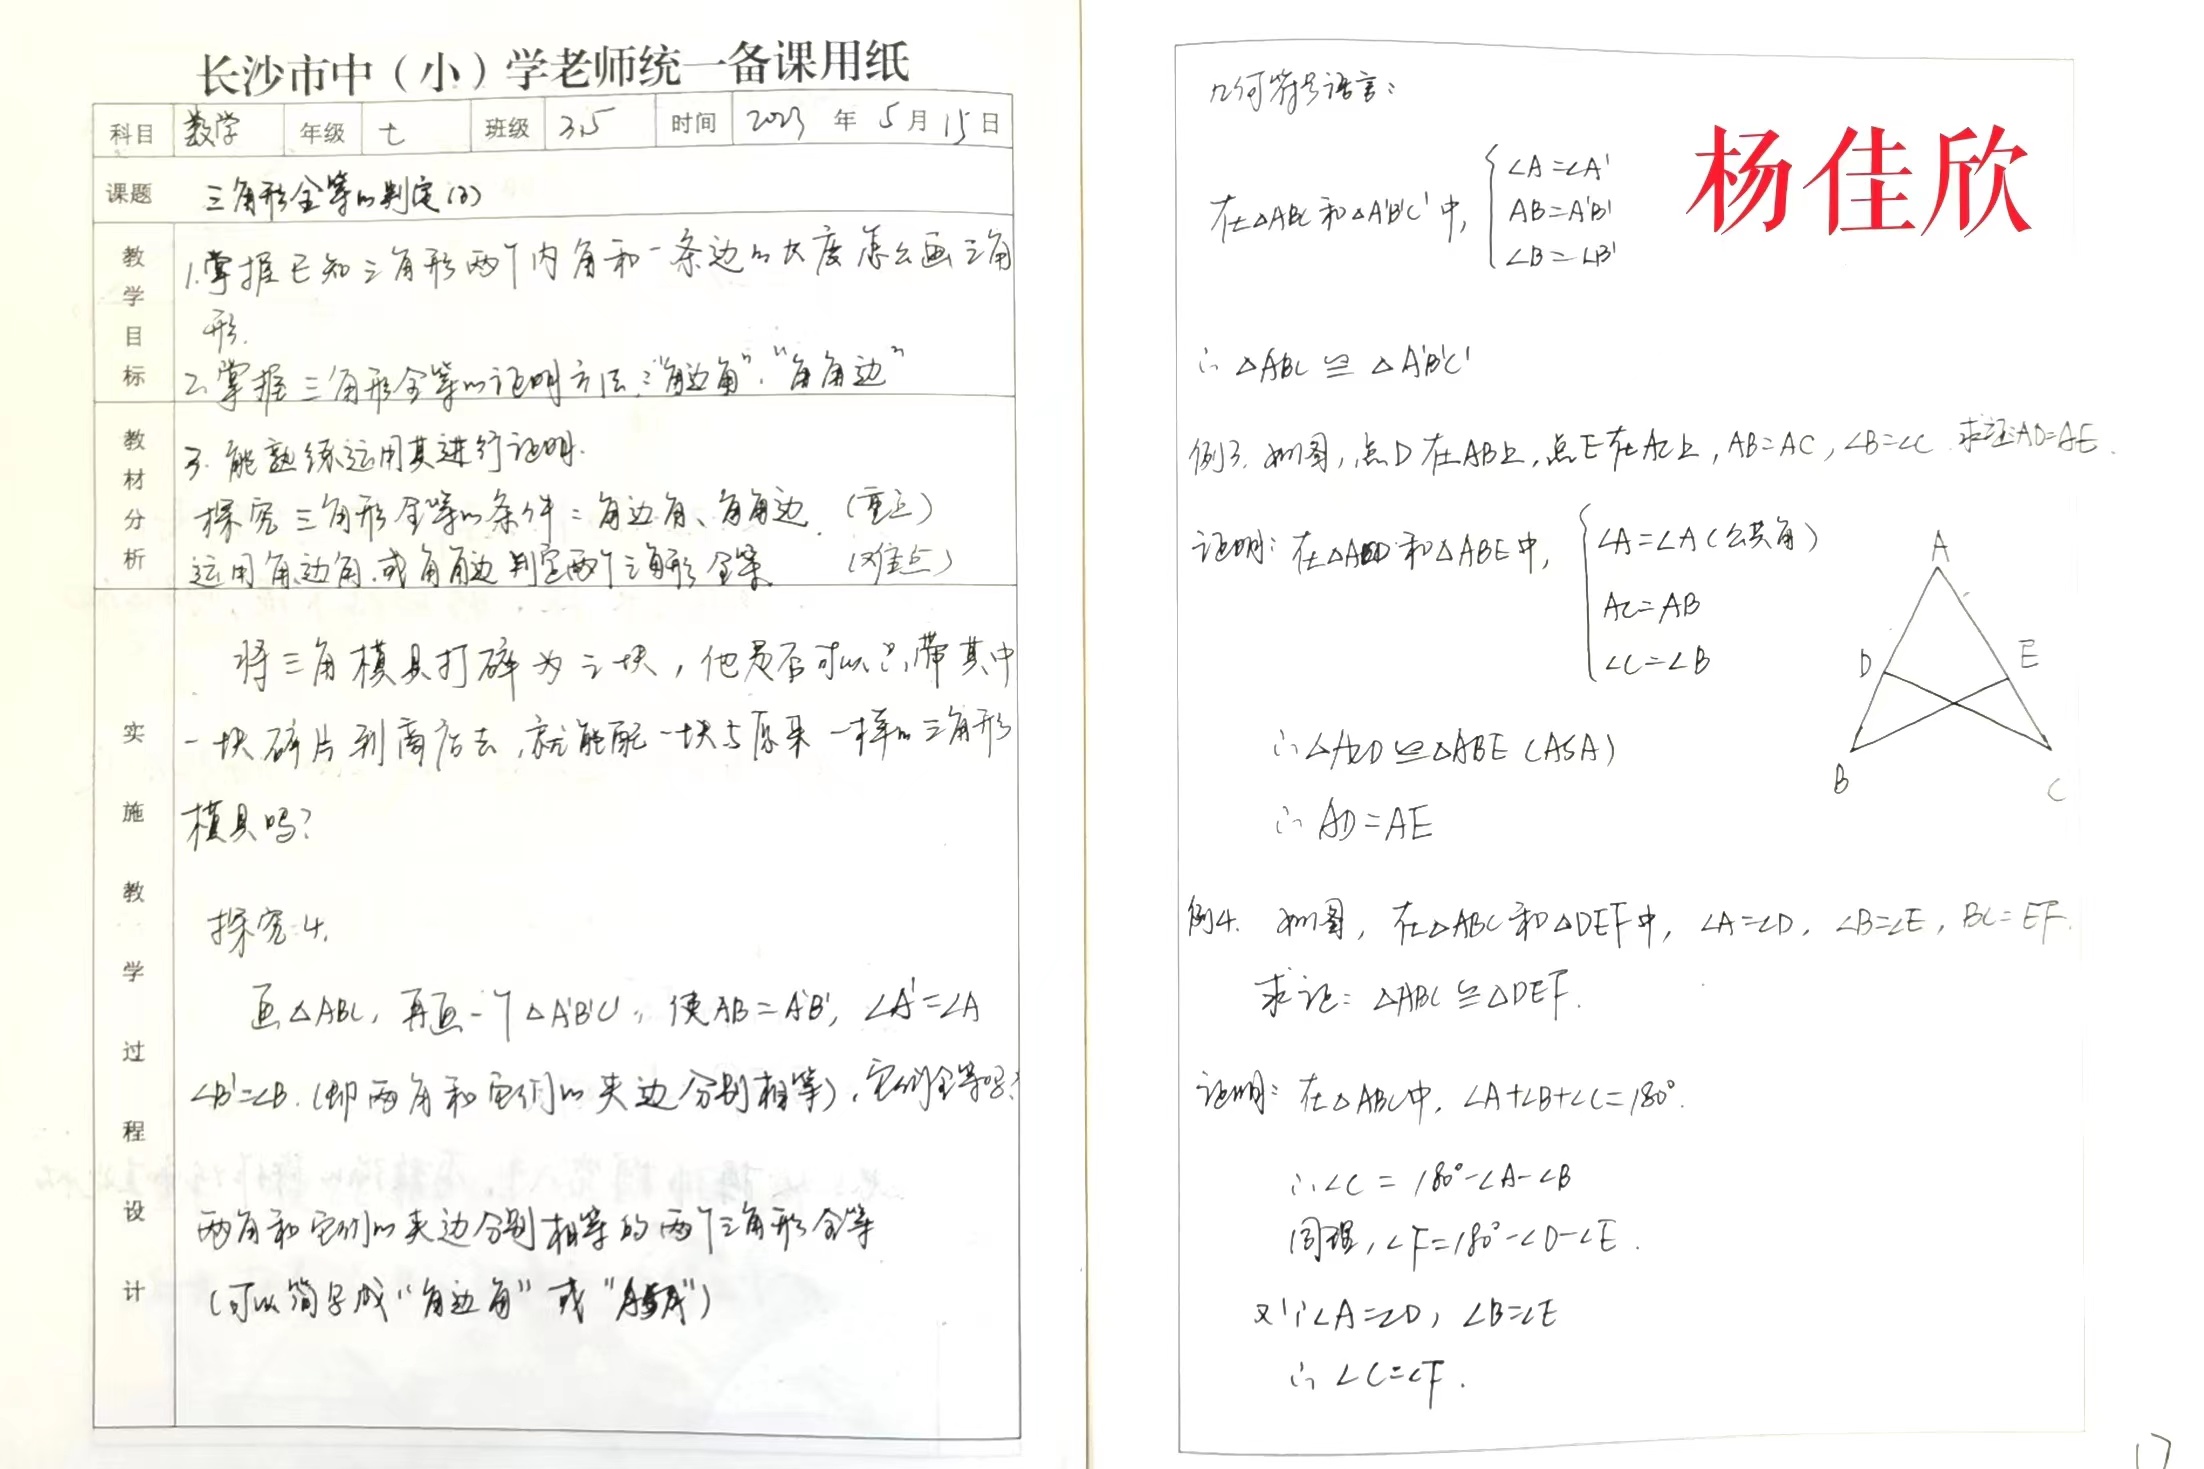 长沙市中（小）学老师统一备课用纸
科目 数学 年级 七 班级 3.5 时间 2023 年 5 月 15 日
课题 三角形全等的判定(3)
教学目标
1.掌握已知三角形两个内角和一条边的长度怎么画三角
形.
2.掌握三角形全等的证明方法:“角边角”.“角角边”
教材分析
3.能熟练运用其进行证明.
探究三角形全等的条件:角边角、角角边.(重点)
运用角边角.或角角边判定两个三角形全等.(难点)
实施教学过程设计
将三角模具打碎为三块,他是否可以只带其中
一块碎片到商店去,就能配一块与原来一样的三角形
模具吗?
探究4.
画△ABC,再画一个△A'B'C',使AB=A'B',∠A'=∠A
∠B'=∠B.(即两角和它们的夹边分别相等),它们全等吗?
两角和它们的夹边分别相等的两个三角形全等
(可以简写成“角边角”或“ASA”)
几何符号语言:
杨佳欣
在△ABC和△A'B'C'中,
∠A=∠A'
AB=A'B'
∠B=∠B'
∴△ABC≌△A'B'C'
例3.如图,点D在AB上,点E在AC上,AB=AC,∠B=∠C.求证:AD=AE.
证明:在△ACD和△ABE中,
∠A=∠A(公共角)
AC=AB
∠C=∠B
A
D
E
B
C
∴△ACD≌△ABE(ASA)
∴AD=AE
例4.如图,在△ABC和△DEF中,∠A=∠D,∠B=∠E,BC=EF.
求证:△ABC≌△DEF.
证明:在△ABC中,∠A+∠B+∠C=180°.
∴∠C=180°-∠A-∠B
同理,∠F=180°-∠D-∠E.
又∵∠A=∠D,∠B=∠E
∴∠C=∠F.
17